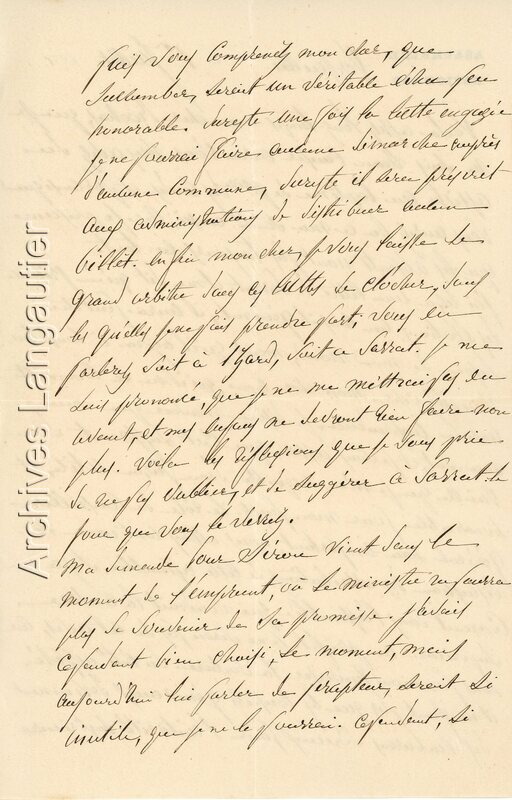 puis vous comprenez mon cher, que
succomber, serait un véritable échec peu
honorable. du reste une fois la lutte engagée
je ne pourrai faire aucune démarche auprès
d'aucune commune, du reste il sera préscrit
aux administrations de distribuer aucun
billet. enfin mon cher, je vous laisse le
grand arbitre dans ces luttes de clocher, dans
les quelles je ne puis prendre part, vous en
parlerez soit à Izard, soit a Sarrat. je me
suis prononcé, que je ne me mettrai pas en
avant, et mes ne devront rien faire non
plus. Voila les réflexions que je vous prie
de ne pas oublier, et de suggérer à Sarrat le
jour que vous le verrez.
Ma demande pour vient dans le
moment de l'emprunt, où le ministre ne pourra
plus se souvenir de sa promesse. j'avais
cependant bien choisi, le moment, mais
aujourd'hui lui parler de serait si
inutile, que je ne le pourrai. Cependant, si
Archives Langautier